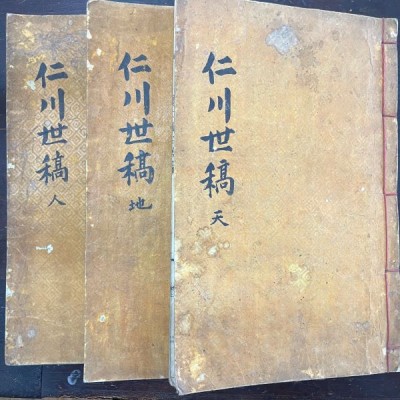 仁川世稿 天
仁川世稿 地
仁川世稿 人